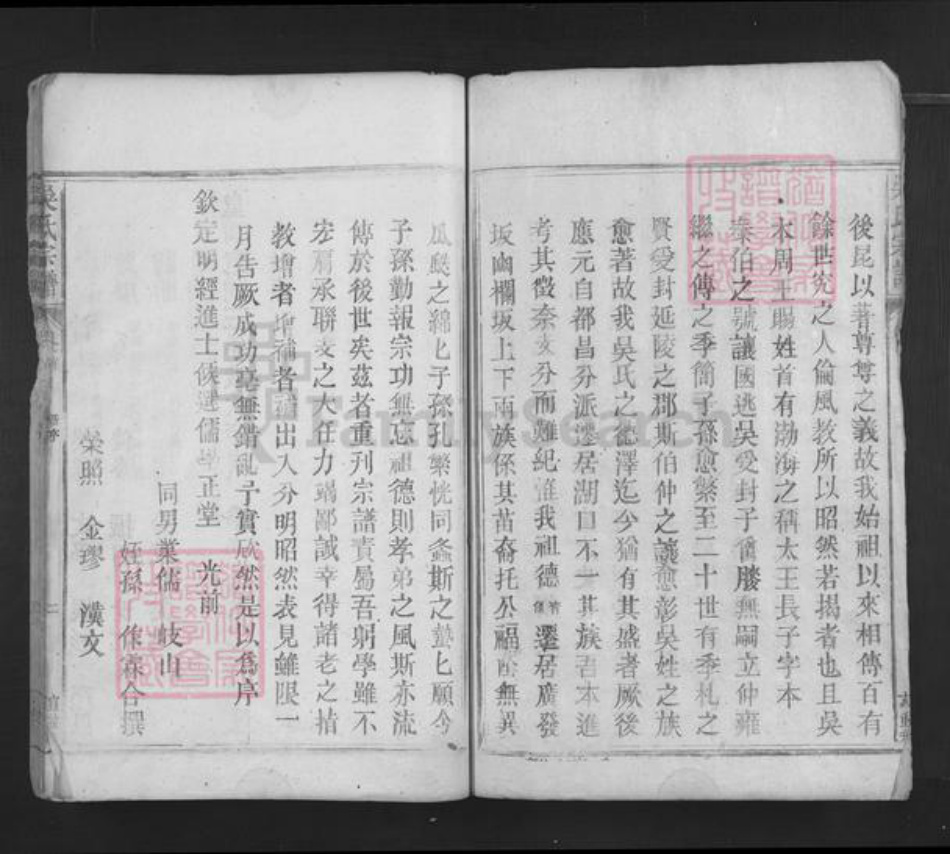 後昆以著尊尊之義故我始祖以來相傳百有
餘世究之人倫風教所以昭然若揭者也且吳
本周王賜姓首有渤海之稱太王長子字本
泰伯之號讓國逃吳受封子爵勝無嗣立仲雍
繼之傳之季簡子孫愈繁至二十世有季札之
賢受封延陵之郡斯伯仲之讓愈彰吳姓之族
愈著故我吳氏之德澤迄今猶有其盛者厥後
應元自都昌分派遷居湖口不一其族吾本進
考其徵奈支分而難紀惟我祖德 遷居廣發
坂幽欄坂上下兩族係其苗裔托公福 無異
瓜瓞之綿匕子孫孔樂恍同螽斯之蟄匕願今
子孫勤報宗功無忘祖德則孝弟之風斯亦流
傳於後世矣茲者重刊宗譜責屬吾躬學雖不
宏肩承聯支之大任力竭鄙誠幸得諸老之指
教增者增補者補出入分明昭然表見雖限一
月告厥成功毫無錯亂予實欣然是以為序
欽定明經進士候選儒學正堂 光前
同男業儒 岐山
姪孫 作霖合撰
榮照 金璆 漢文
吳氏宗譜
FamilySearch